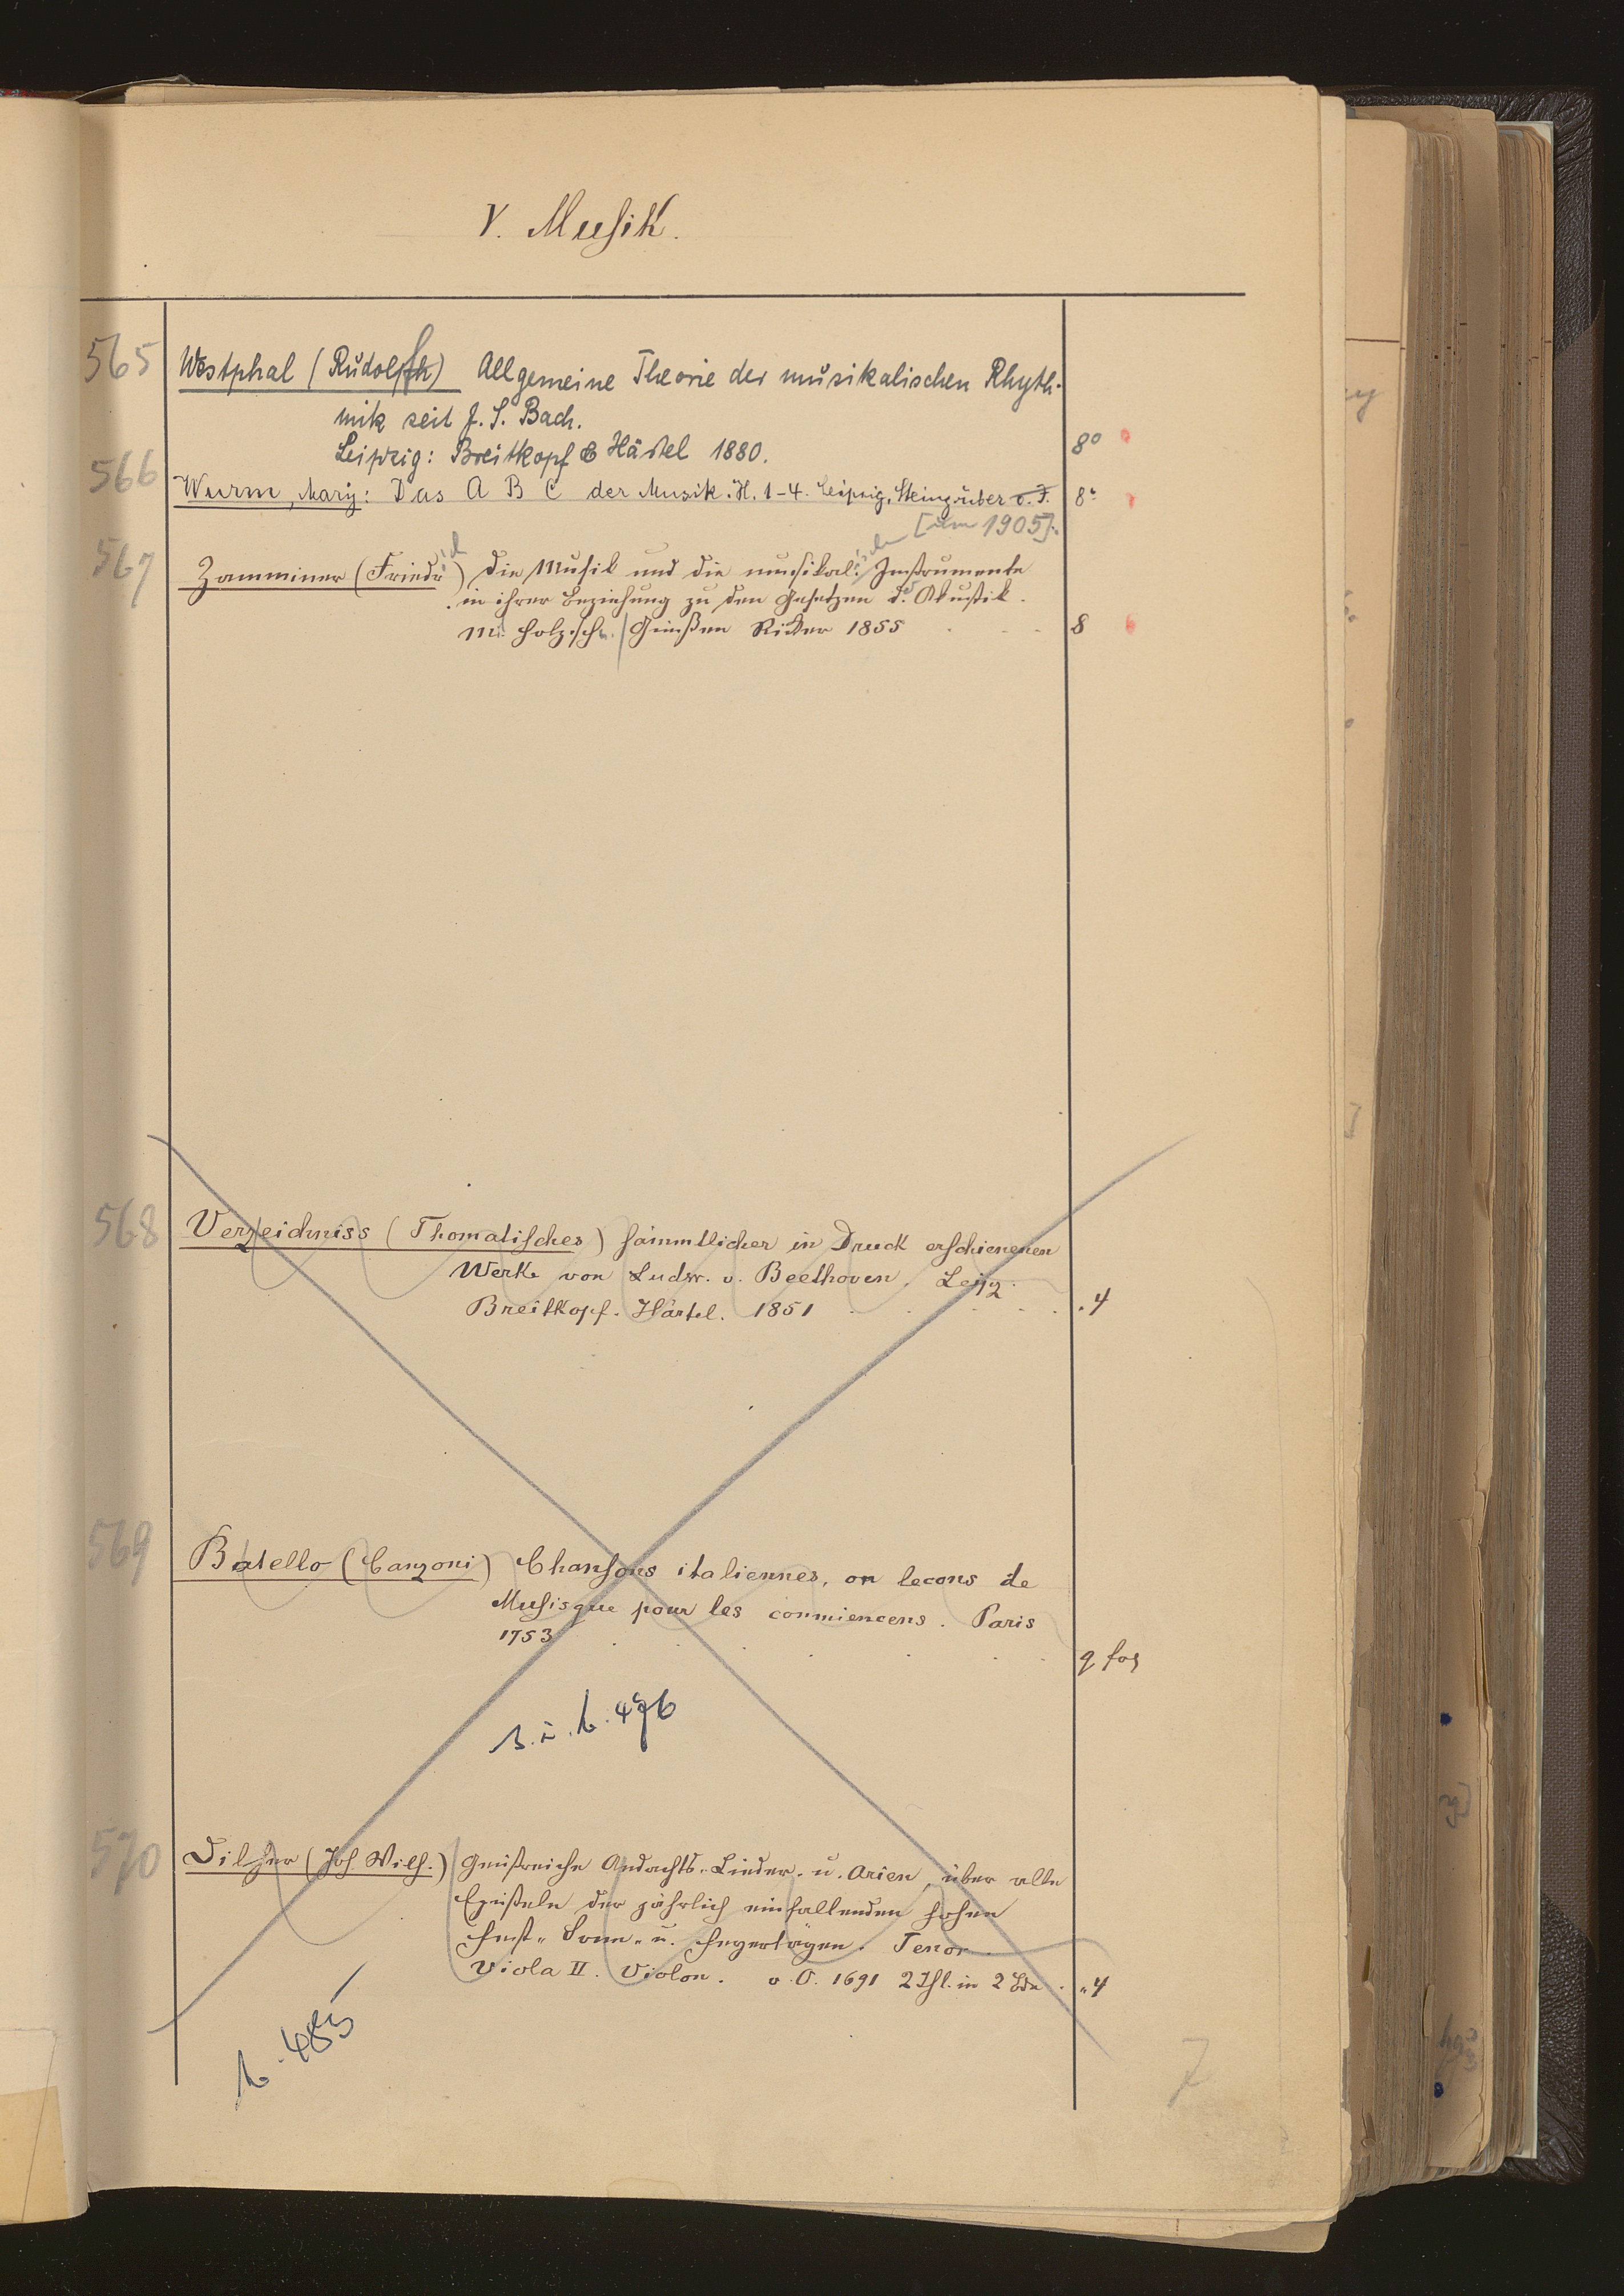 V. Musik.
565 Westphal (Rudolph) Allgemeine Theorie der musikalischen Rhyth-
mik seit J. S. Bach.
Leipzig: Breitkopf & Härtel 1880. 8°
566 Wurm, Mary: Das A B C der Musik. H. 1-4. Leipzig, Steingräber o. J. 8°
[um 1905].
567 Zamminer (Friedr) die Musik und die musikal. Instrumente
in ihrer Beziehung zu den Gesetzen d. Akustik.
M. Holzsch. Gießen Ricker 1855 8
568 Verzeichniss (Thematisches) sämmtlicher in Druck erschienenen
Werke von Ludw. v. Beethoven. Leipz.
Breitkopf. Härtel. 1851 4
569 Batello (Canzoni) Chansons italiennes, on lecons de
Musisque pour les commiencens. Paris
1753 q fol
496
570 Dilherr (Joh. Wilh.) Geistreiche Andachts-Lieder u. Arien, über alle
Episteln der jährlich einfallenden hohen
Fest- Sonn- u. Feyertägen. Tenor.
Viola II. Violon. o. O. 1691 2 Thl. in 2 Bde 4
485
7